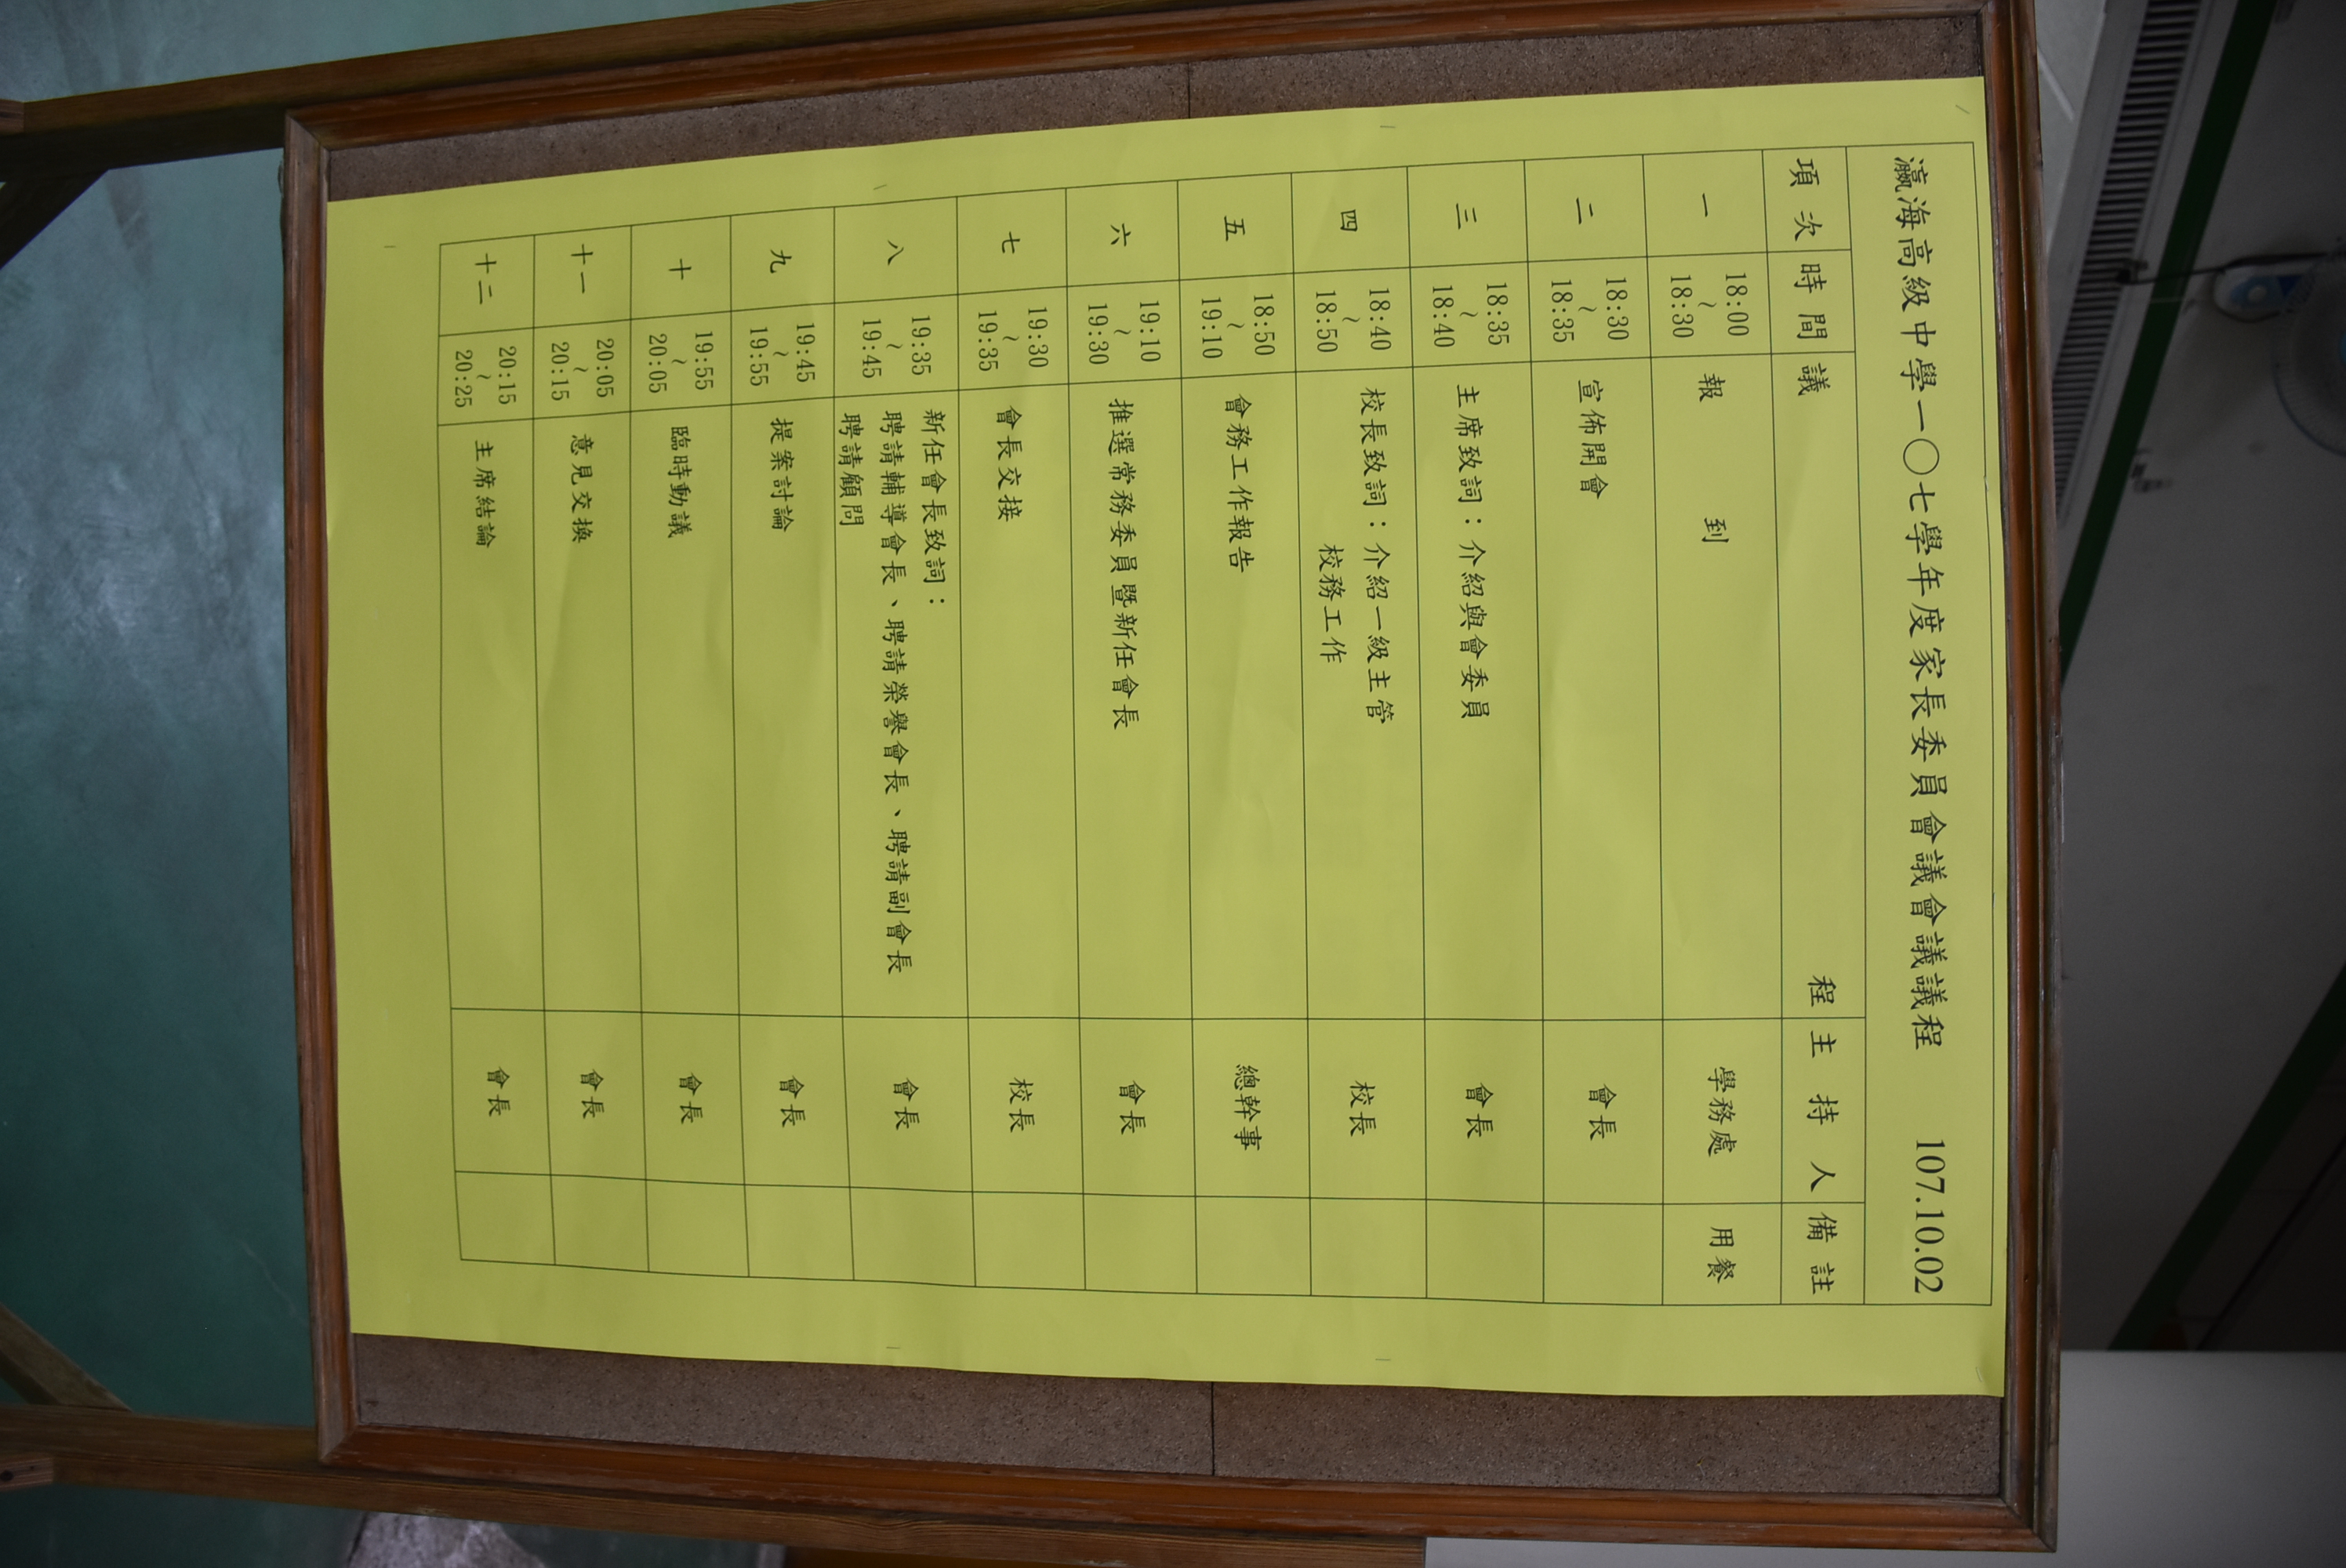 瀛海高級中學一〇七學年度家長委員會議會議議程 107.10.02
項次 時間 議 程 主持人 備註
一 18:00~18:30 報 到 學務處 用餐
二 18:30~18:35 宣佈開會 會長
三 18:35~18:40 主席致詞：介紹與會委員 會長
四 18:40~18:50 校長致詞：介紹一級主管 校長
校務工作
五 18:50~19:10 會務工作報告 總幹事
六 19:10~19:30 推選常務委員暨新任會長 會長
七 19:30~19:35 會長交接 校長
八 19:35~19:45 新任會長致詞： 會長
聘請輔導會長、聘請榮譽會長、聘請副會長
聘請顧問
九 19:45~19:55 提案討論 會長
十 19:55~20:05 臨時動議 會長
十一 20:05~20:15 意見交換 會長
十二 20:15~20:25 主席結論 會長